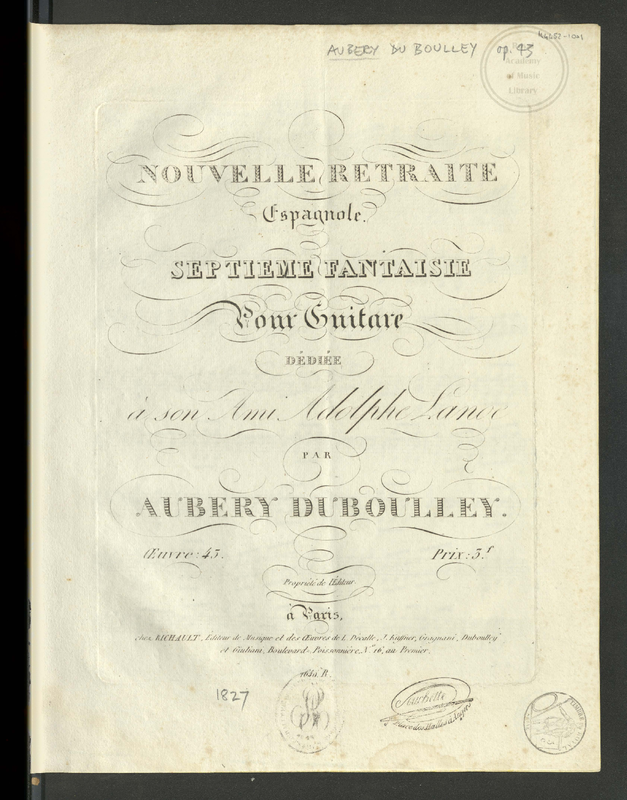 AUBERY DU BOULLEY op. 43
Academy
of Music
Library
NOUVELLE RETRAITE
Espagnole.
SEPTIEME FANTAISIE
Pour Guitare
DÉDIÉE
à son Ami Adolphe Lanoe
PAR
AUBERY DUBOULLEY.
Œuvre: 43. Prix: 3.f
Propriété de l'Éditeur.
à Paris,
chez RICHAULT, Éditeur de Musique et des Œuvres de L. Decalle, J. Kuffner, Gragnani, Duboulley
et Giuliani, Boulevard Poissonnière, N.o 16, au Premier.
1827